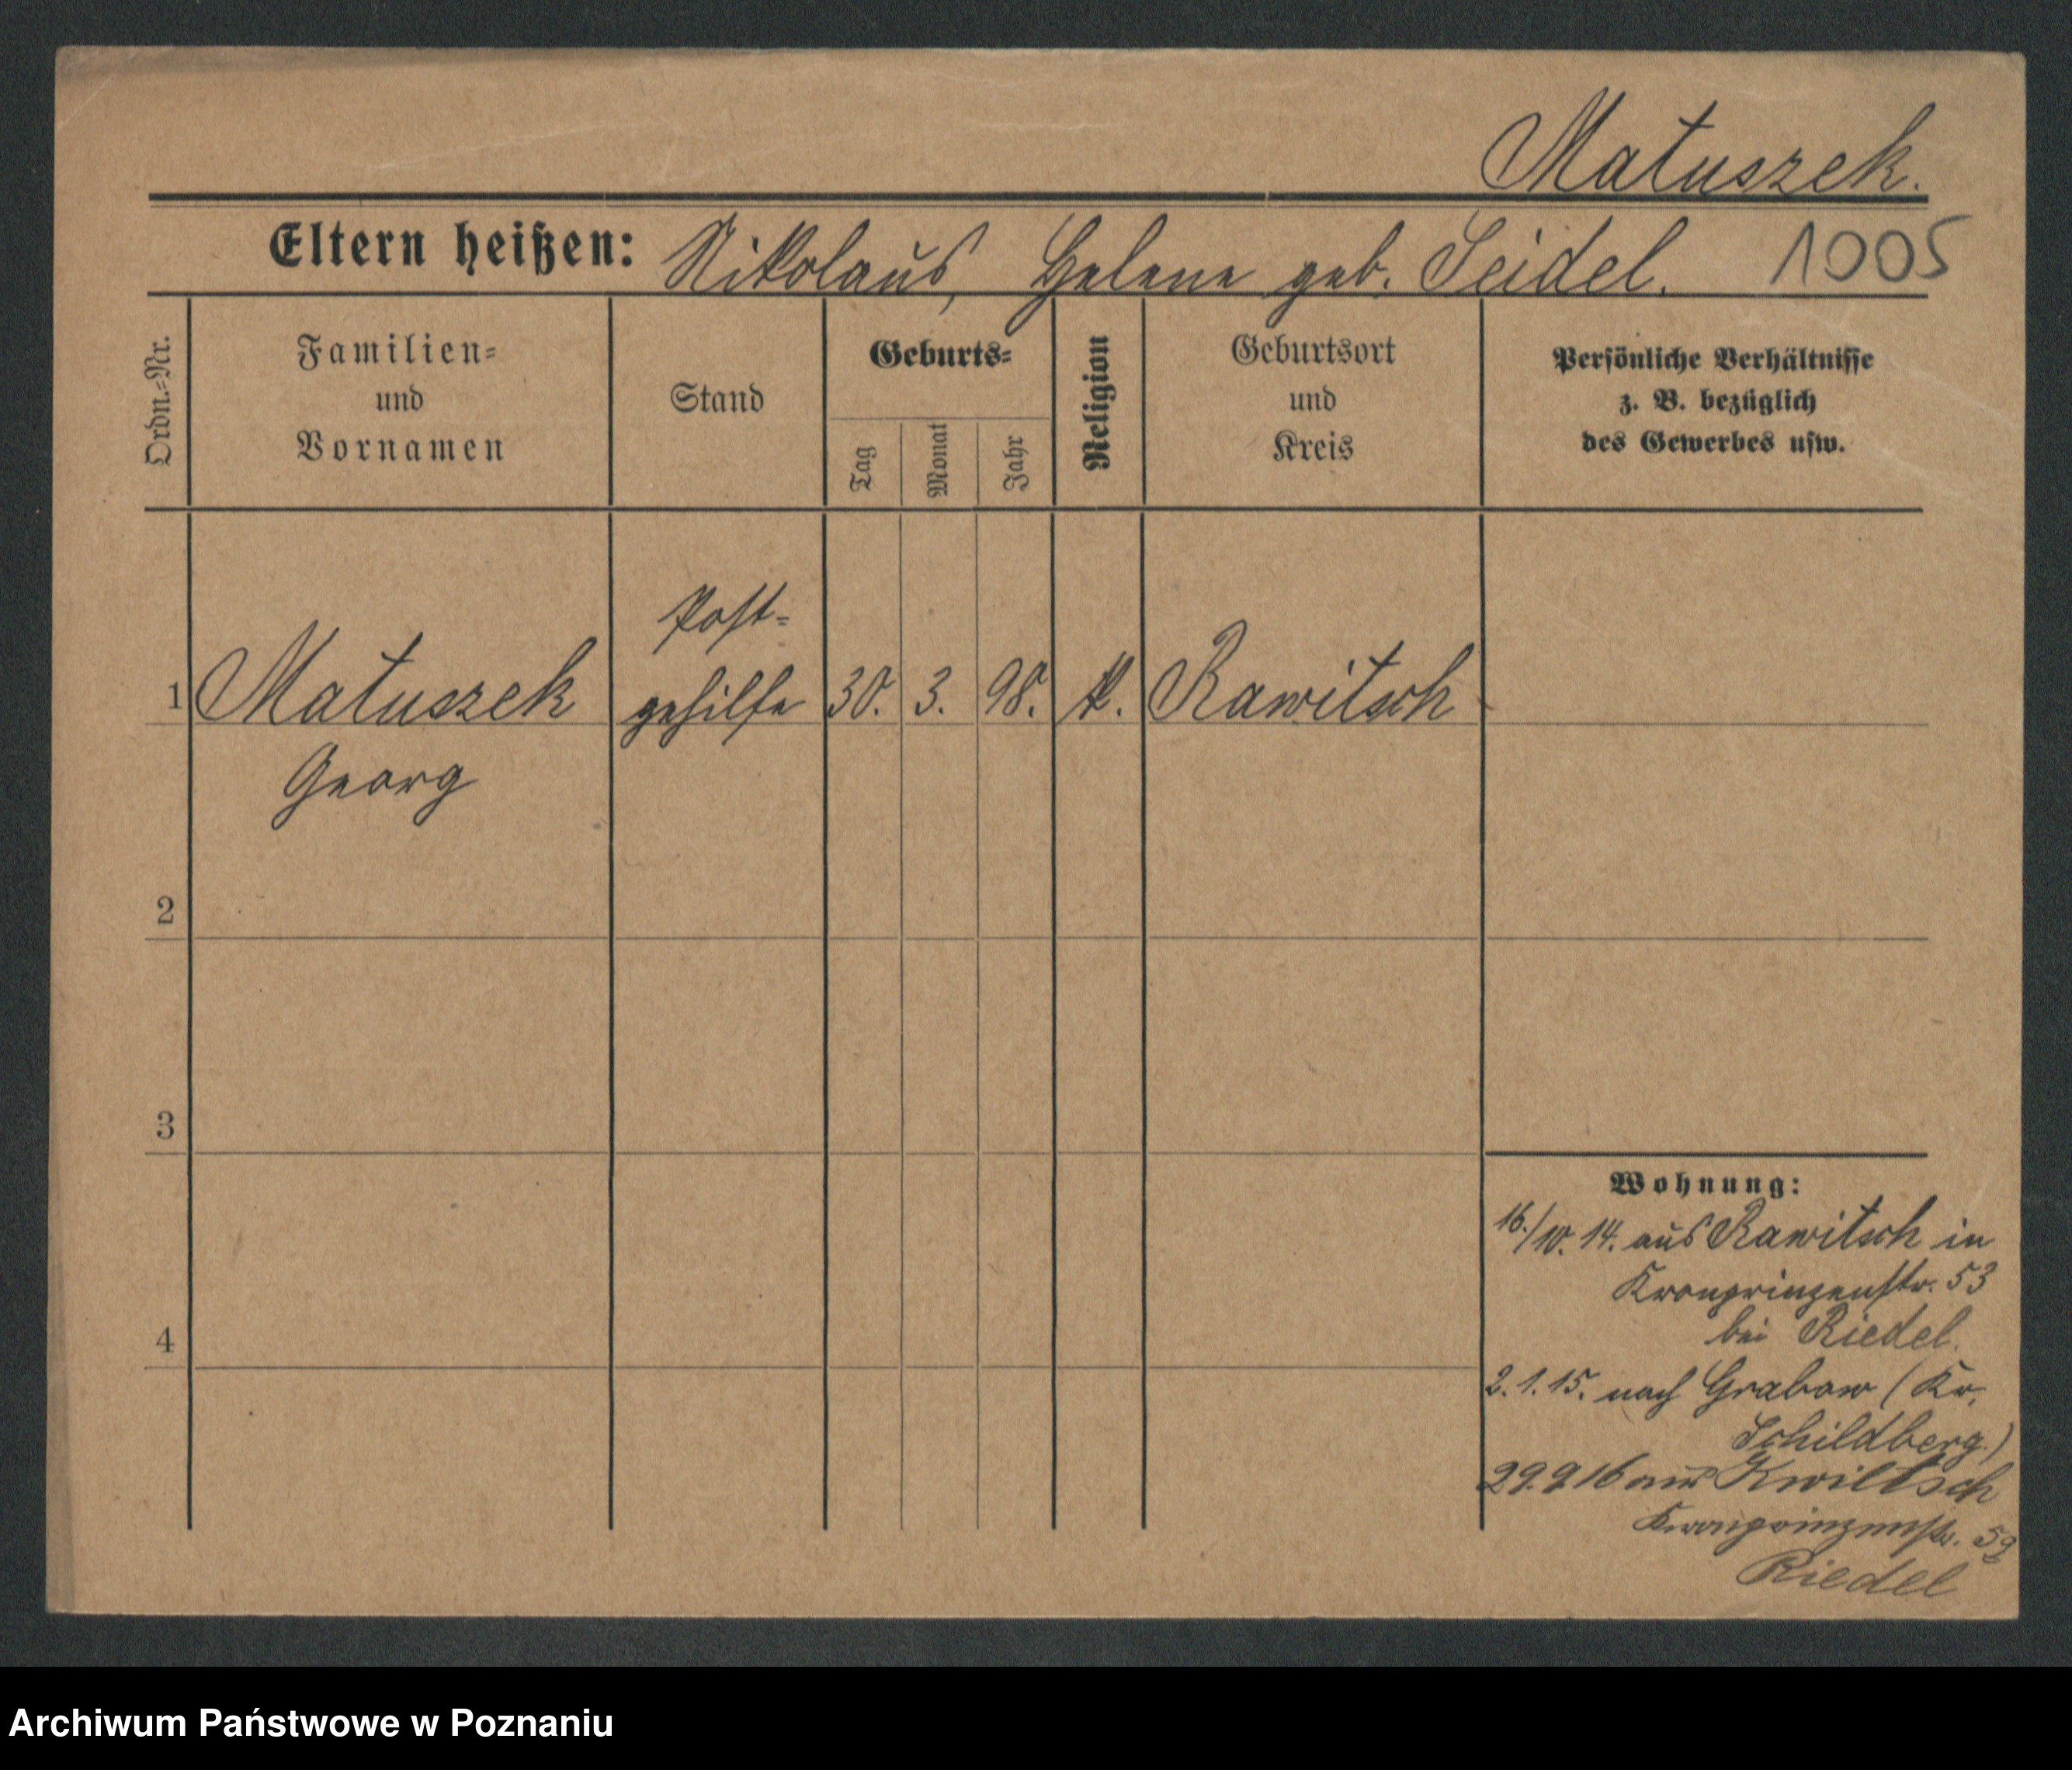 Matuszek.
Eltern heißen: Nikolaus, Helene geb. Seidel. 1005
Ordn.=Nr.
Familien=
und
Vornamen
Stand
Geburts=
Tag
Monat
Jahr
Religion
Geburtsort
und
Kreis
Persönliche Verhältnisse
z. B. bezüglich
des Gewerbes usw.
Post=
1 Matuszek gehilfe 30. 3. 98. k. Rawitsch
Georg
2
3
Wohnung:
16./10. 14. aus Rawitsch in
Kronprinzenstr. 53
bei Riedel.
4
2.1.15. nach Grabow (Kr.
Schildberg.)
29.9.16 aus Kwiltsch
Kronprinzenstr. 59
Riedel
Archiwum Państwowe w Poznaniu